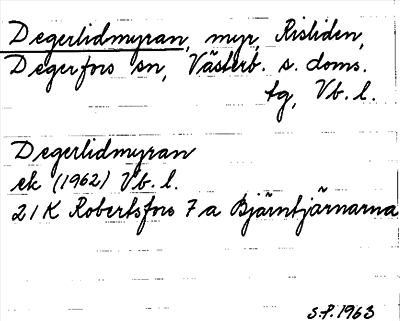 Degerlidmyran, myr, Risliden,
Degerfors sn, Västerb. s. doms.
tg, Vb. l.
Degerlidmyran
ek (1962) Vb. l.
21K Robertsfors 7a Bjärntjärnarna
S.P. 1963